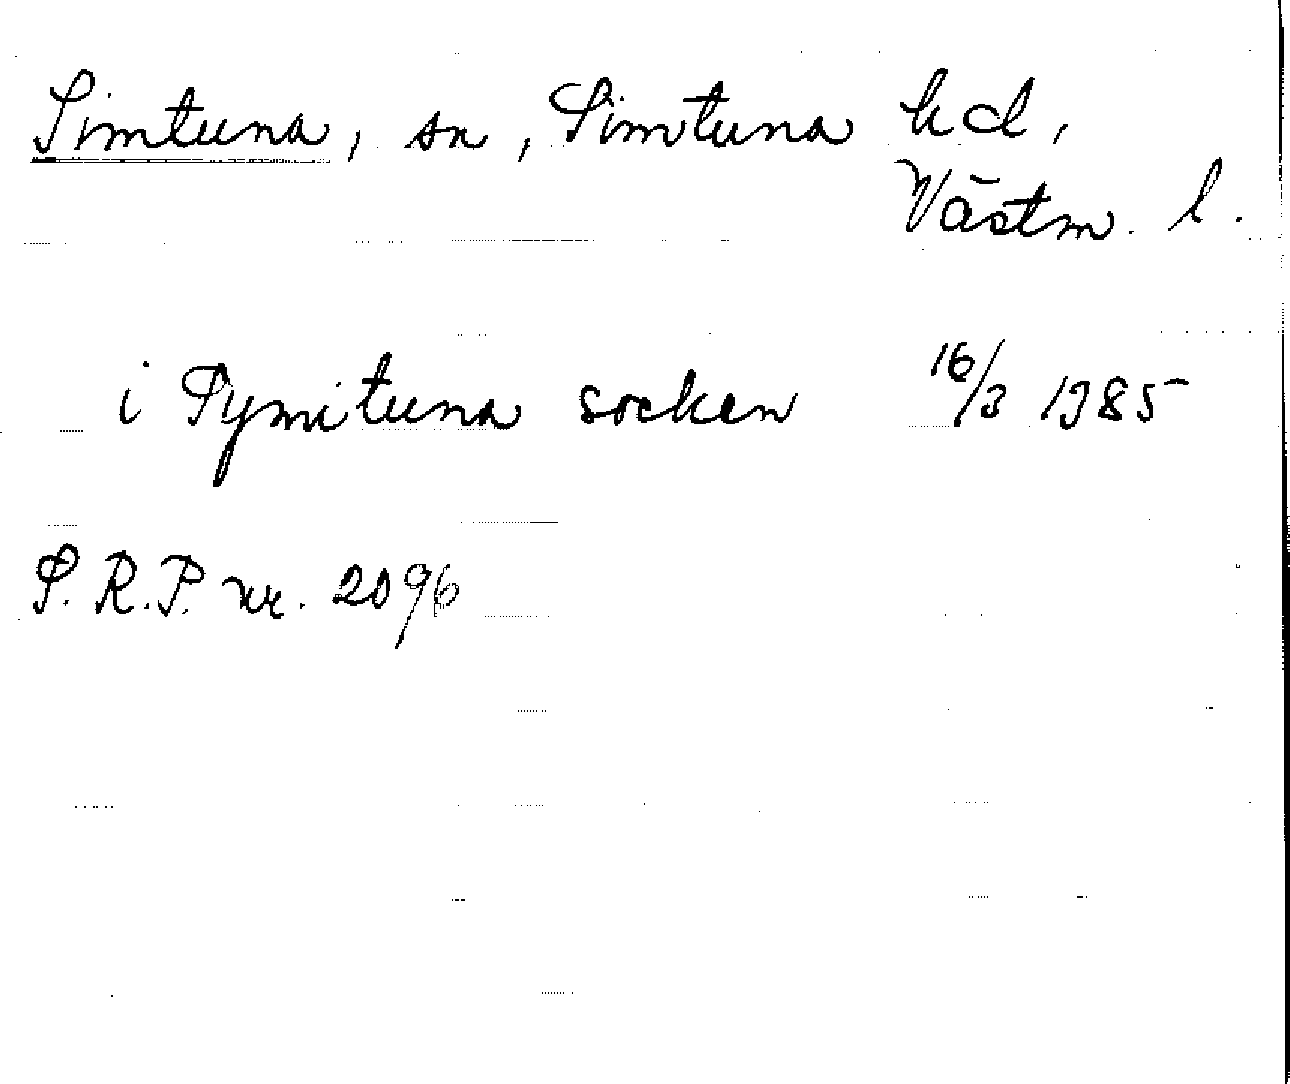 Simtuna, sn, Simtuna hd,
Västm. l.
i Symituna socken 16/3 1385
S.R.P. nr. 2096